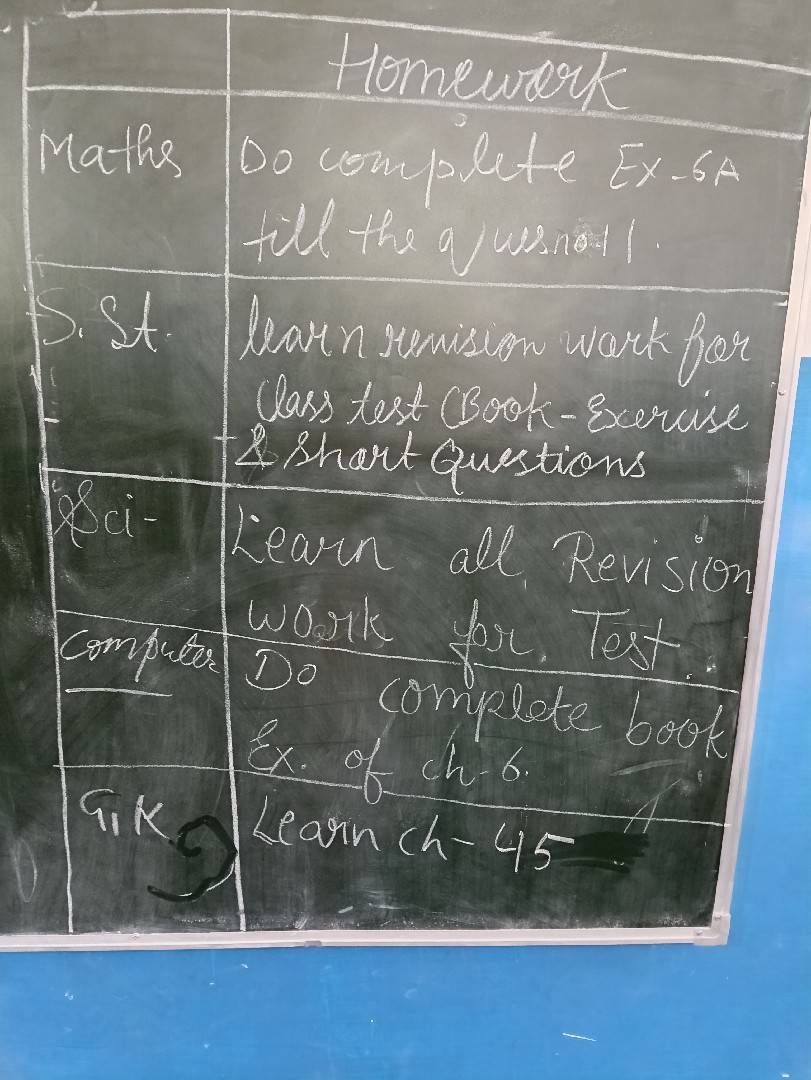 Homework
Maths Do complete Ex-6A
till the Ques no 11.
S. St. learn revision work for
Class test (Book-Exercise
& Short Questions
Sci- Learn all Revision
work for Test.
Computer Do complete book
Ex. of ch-6.
G.K Learn ch-45